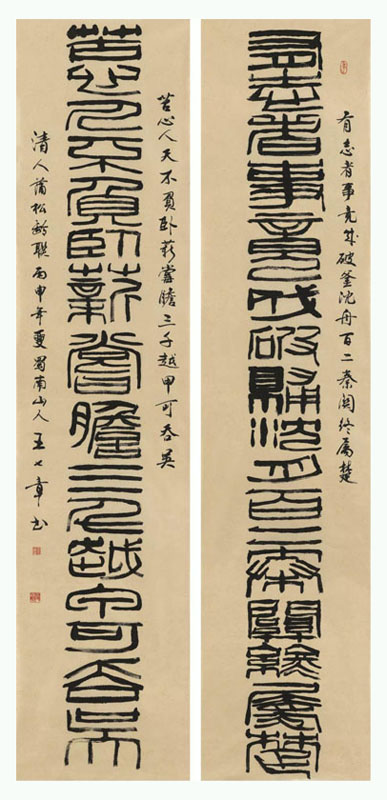 有志者事竟成破鬴沈舟百二秦關終屬楚
有志者事竟成破釜沈舟百二秦關終屬楚
苦心人天不負臥薪嘗膽三千越甲可吞吳
苦心人天不負臥薪嘗膽三千越甲可吞吳
清人蒲松齡聯丙申年夏蜀南山人王七章书